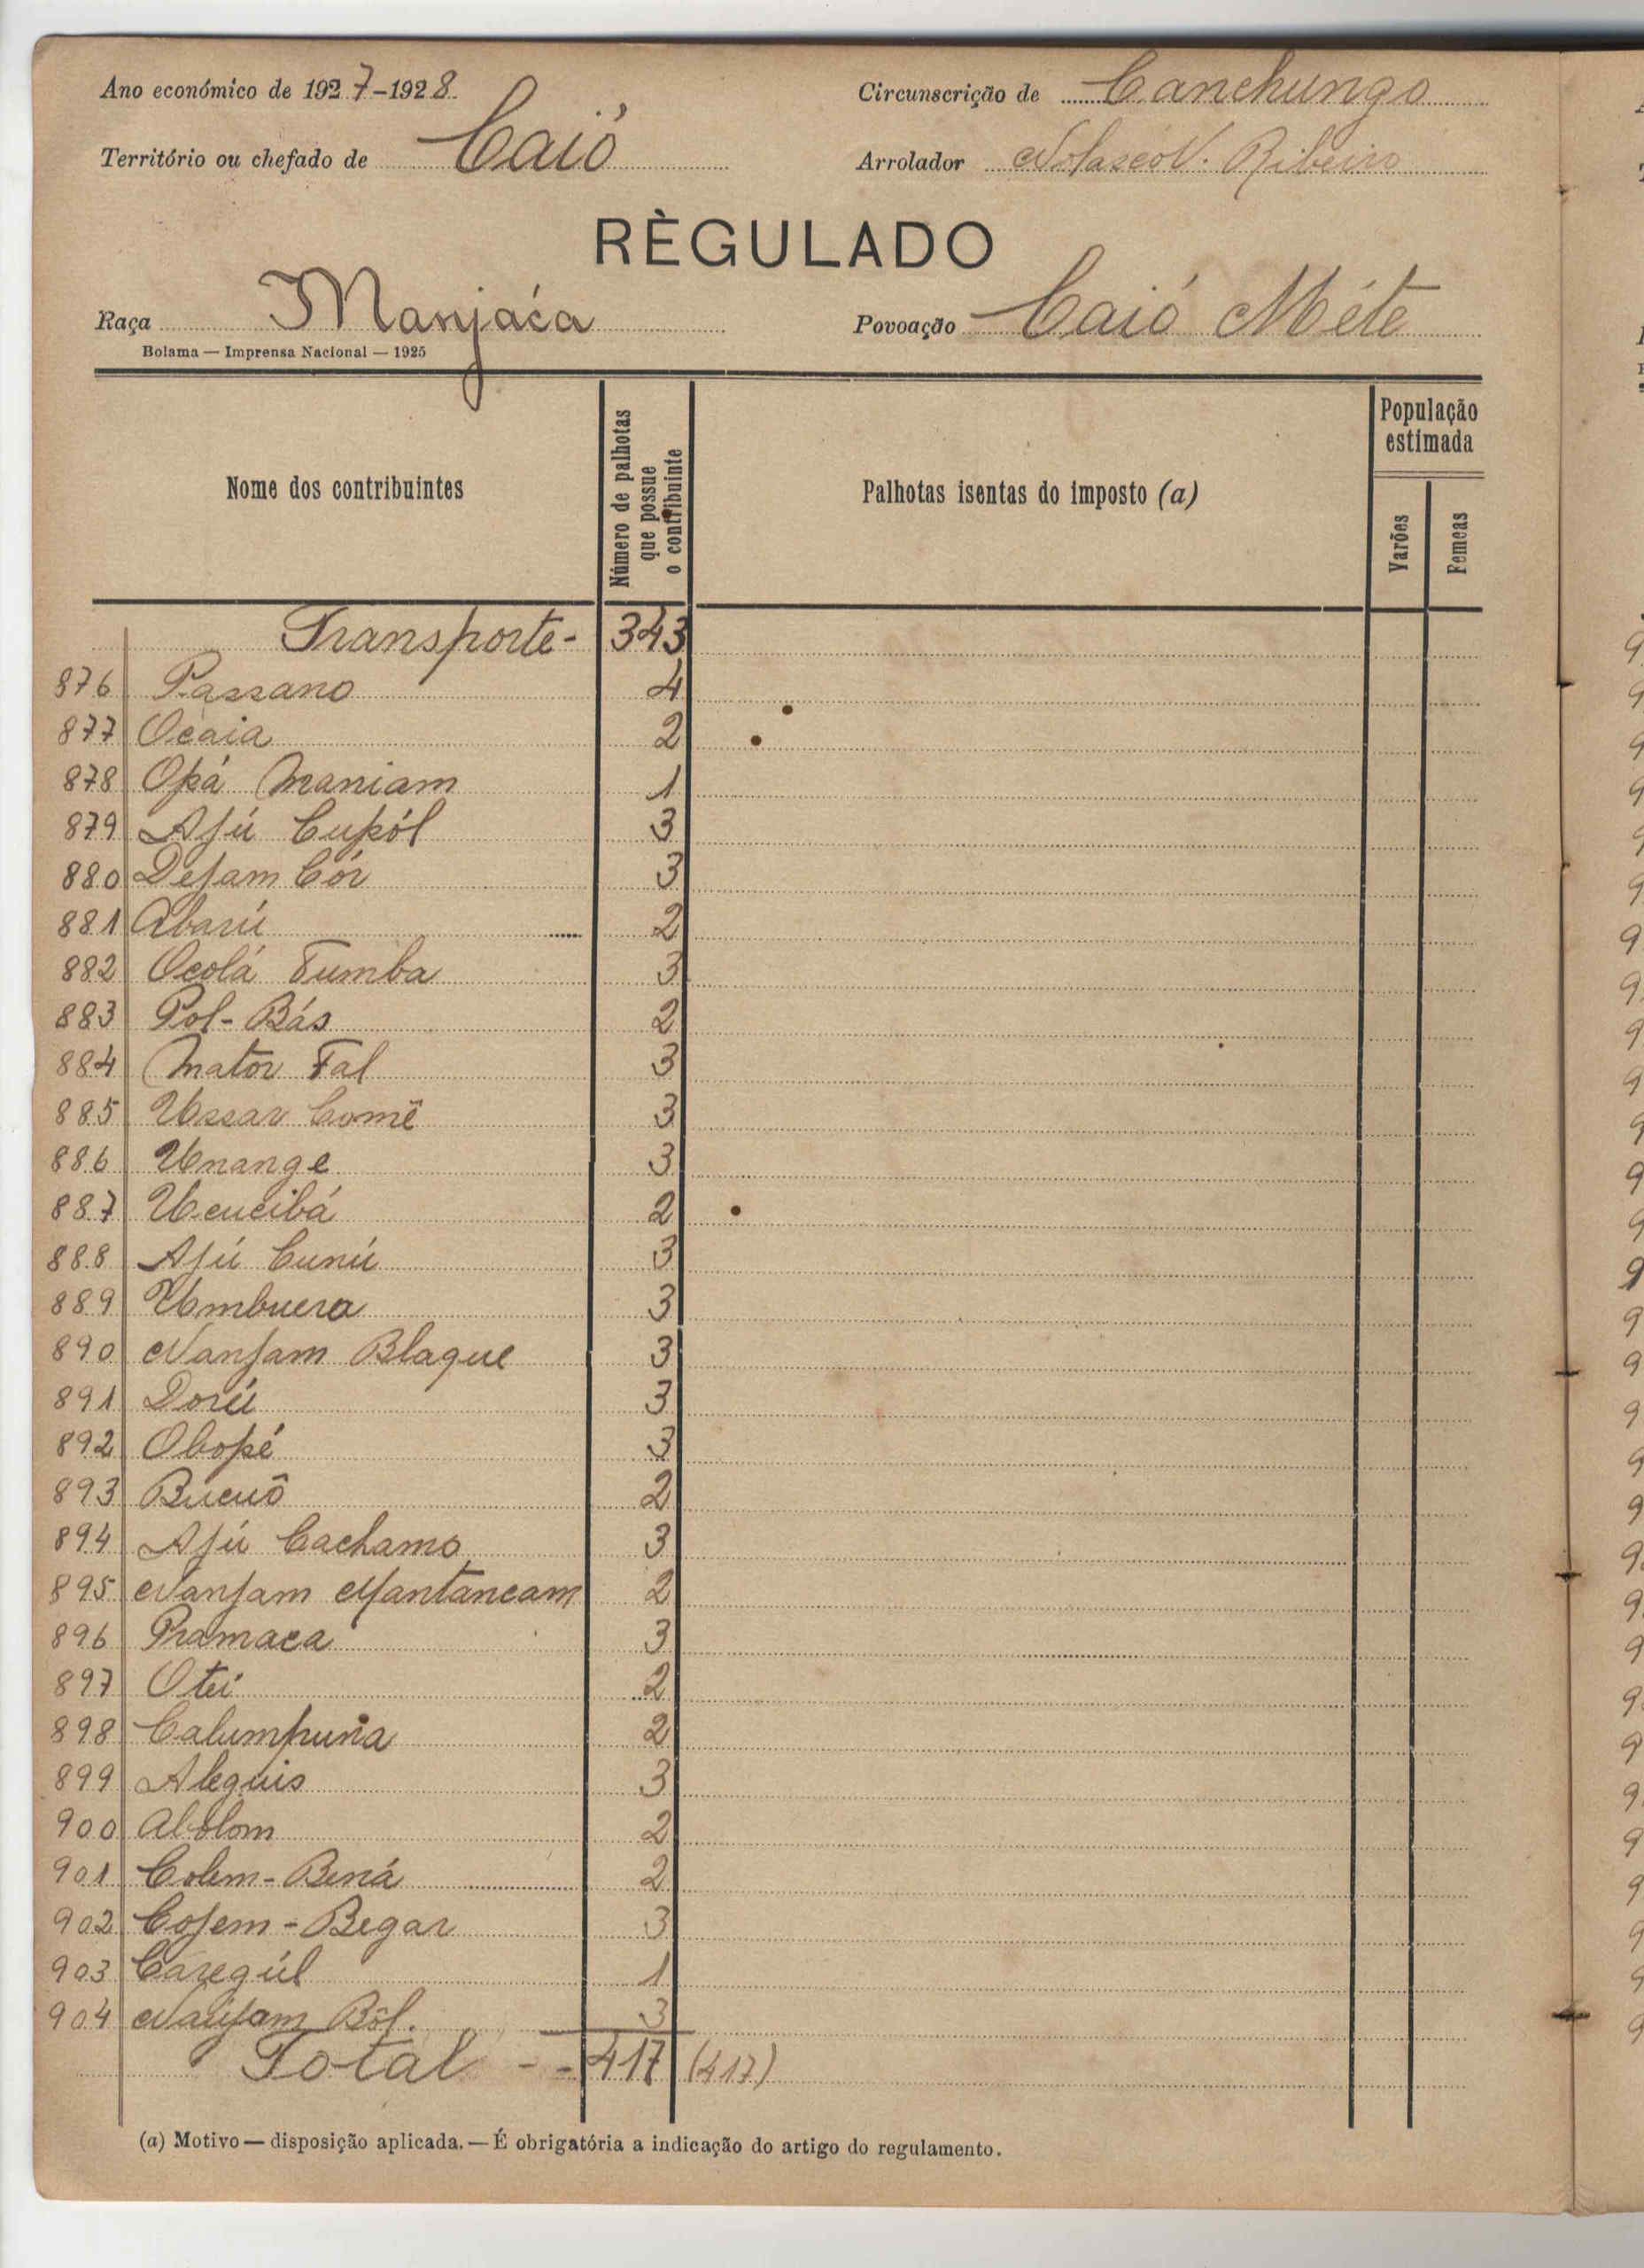 Ano económico de 1927-1928
Circunscrição de Canchungo
Território ou chefado de Caió
Arrolador Nolasco V. Ribeiro
RÈGULADO
Raça Manjáca
Povoação Caió Méte
Bolama — Imprensa Nacional — 1925
Nome dos contribuintes
Número de palhotas que possue o contribuinte
Palhotas isentas do imposto (a)
População estimada
Varões
Femeas
Transporte- 343
876 Passano 4
877 Ocaia 2
878 Opá Maniam 1
879 Ajú Cupól 3
880 Dejam Cór 3
881 Abarú 2
882 Ocolá Tumba 3
883 Pol-Bás 2
884 Mator Fal 3
885 Ussar Comê 3
886 Unange 3
887 Ucucibá 2
888 Ajú Cunú 3
889 Umbuera 3
890 Nanjam Blaque 3
891 Dorú 3
892 Obopé 3
893 Bucuô 2
894 Ajú Cachamo 3
895 Nanjam 2
896 Pramaca 3
897 Otei 2
898 Calumpuna 2
899 Aleguis 3
900 Abolom 2
901 Colem-Bená 2
902 Cojem-Begar 3
903 Caregúl 1
904 Naujam Ból. 3
Total -- 417 (417)
(a) Motivo — disposição aplicada. — É obrigatória a indicação do artigo do regulamento.